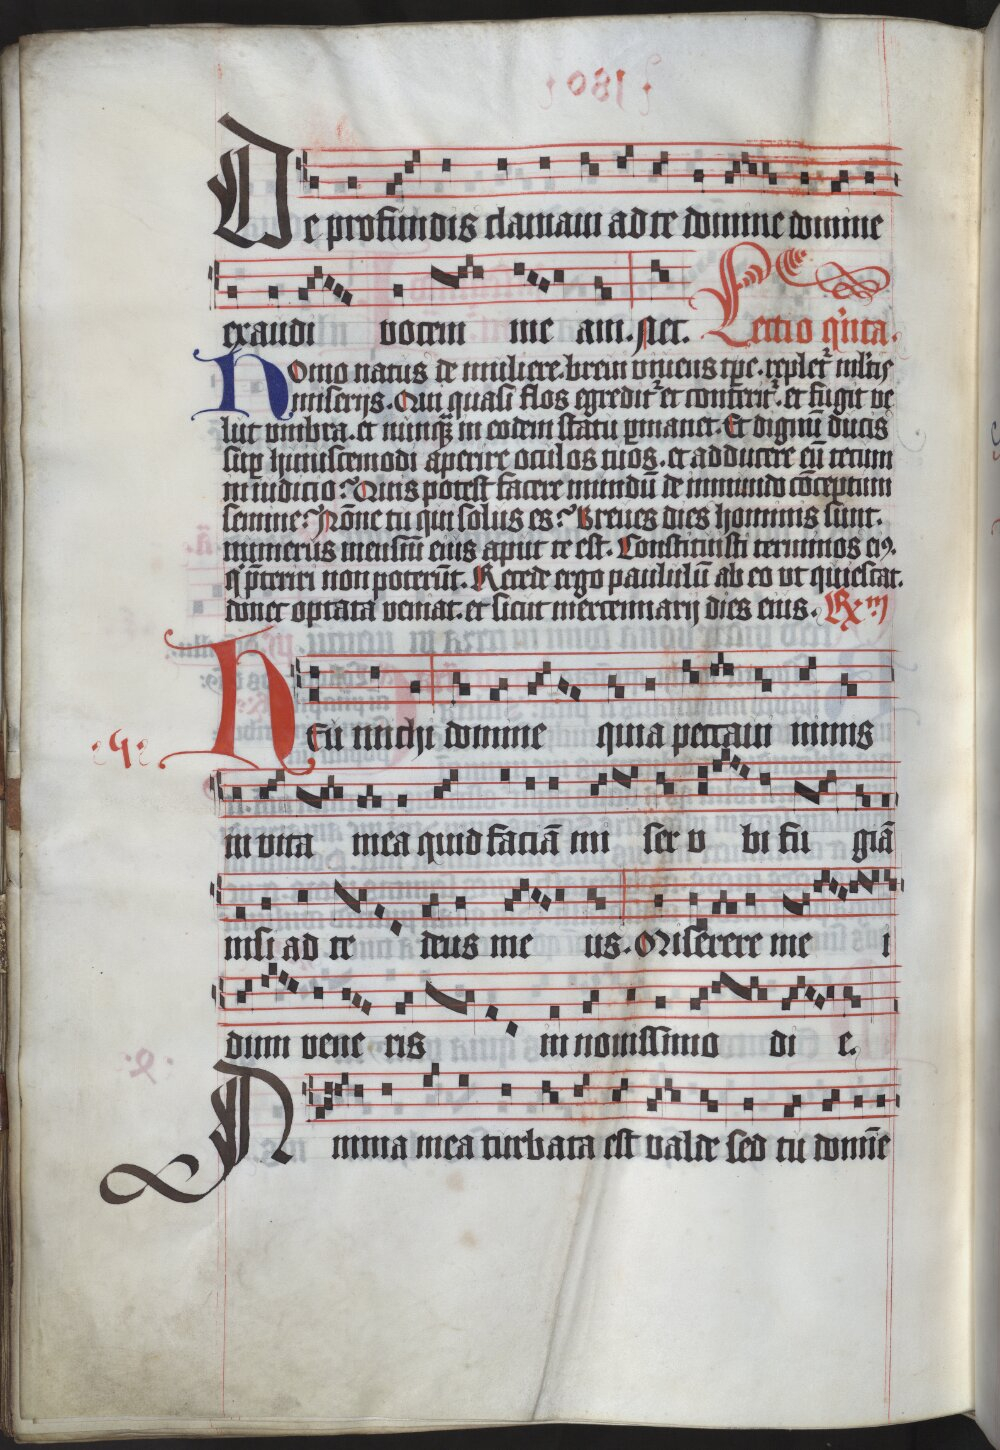 De profundis clamaui ad te domine domine
exaudi vocem me am. Nec. Lectio q'nta.
Homo natus de muliere. breui viuens tp̄e. repletᷣ ml'tis
miserijs. Qui quasi flos egreditᷣ et conteritᷣ. et fugit ve
lut vmbra. et nunqȝ in eodem statu ꝑmanet. Et dignū ducis
suꝑ huiuscemodi aperire oculos tuos. et adducere eū tecum
in iudicio? Quis potest facere mundū de inmundo cōceptum
semine? Nōne tu qui solus es? Breues dies hominis sunt.
numerus mensiū eius aput te est. Constituisti terminos eiꝰ.
q' p̄teriri non poterūt. Recede ergo paululū ab eo vt quiescat.
donec optata veniat. et sicut mercennarij dies eius. Rx m
Heu michi domine quia peccaui nimis
in vita mea quid faciā mi ser v bi fu giā
nisi ad te deus me us. Miserere me i
dum vene ris in nouissimo di e.
Anima mea turbata est valde sed tu domīe